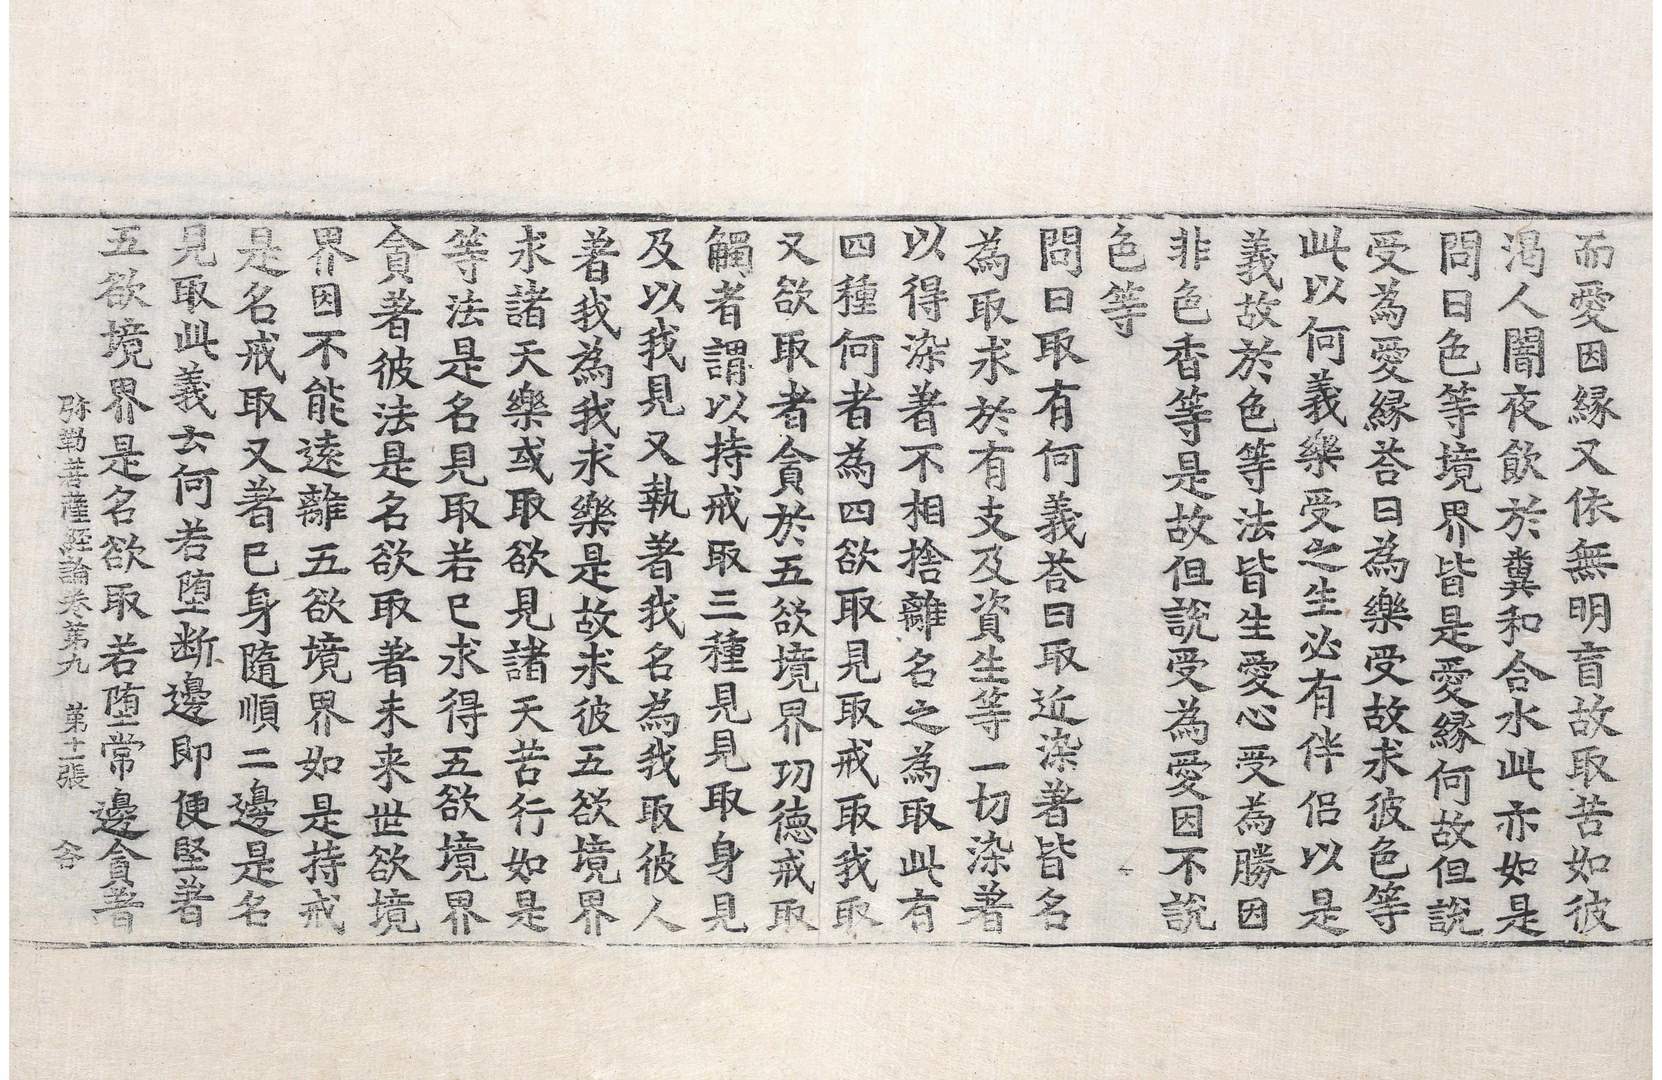 而愛因縁又依無明盲故取苦如彼
渴人闇夜飲於糞和合水此亦如是
問曰色等境界皆是愛縁何故但說
受為愛縁荅曰為樂受故求彼色等
此以何義樂受之生必有伴侣以是
義故於色等法皆生愛心受為勝因
非色香等是故但說受為愛因不說
色等
問曰取有何義荅曰取近染著皆名
為取求於有支及資生等一切染著
以得染著不相捨離名之為取此有
四種何者為四欲取見取戒取我取
又欲取者貪於五欲境界功德戒取
觸者謂以持戒取三種見見取身見
及以我見又執著我名為我取彼人
著我為我求樂是故求彼五欲境界
求諸天樂或取欲見諸天苦行如是
等法是名見取若已求得五欲境界
貪著彼法是名欲取著未来世欲境
界因不能遠離五欲境界如是持戒
是名戒取又著已身隨順二邊是名
見取此義云何若堕断邊即便堅著
五欲境界是名欲取若堕常邊貪著
弥勒菩薩經論卷第九 第十一張 谷